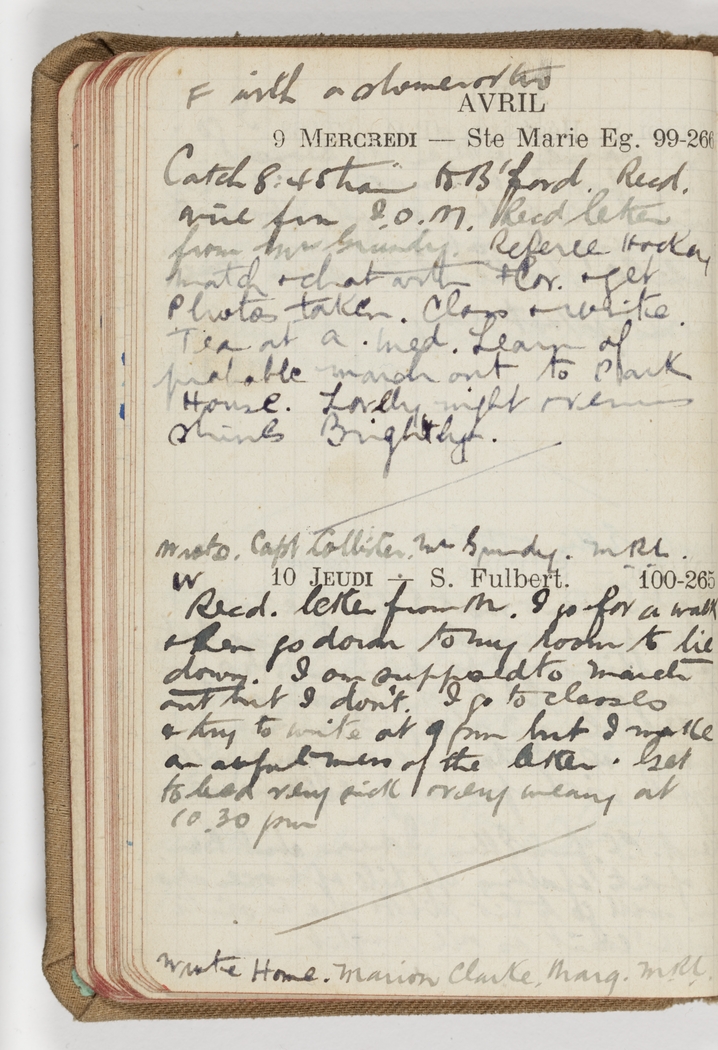 F with a stomeworths
AVRIL
9 MERCREDI — Ste Marie Eg. 99-266
Catch 8.45 train to B'ford. Recd.
wire from I.O.M. Recd letter
from Mrs Grundy. Referee Hockey
match & chat with & get
Photos taken. Class & write.
Tea at a . med. Learn of
probable march out to Park
House. Lovely night & venus
shines Brightly.
Wrote. Capt Collister. Mrs Grundy.
W 10 JEUDI — S. Fulbert. 100-265
Recd. letter from M. I go for a walk
& then go down to my room to lie
down. I am supposed to march
out but I don't. I go to classes
& try to write at 9 pm but I make
an awful mess of the letter. Get
to bed very sick & very weary at
10.30 pm
Wrote Home. Marion Clarke, Marg.